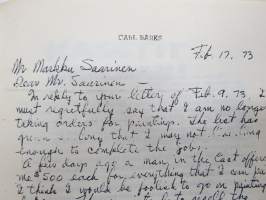 CARL BARKS
Feb 17, 73
Mr Markku Saarinen
Dear Mr. Saarinen —
In reply to your letter of Feb. 9, 73 I
must rightfully say that I am no longer
taking orders for paintings. The list has
long that I may not live long
enough to complete the jobs.
A few days ago a man in the East offered
me $500 each for everything that I can paint
I think I would be foolish to go on painting